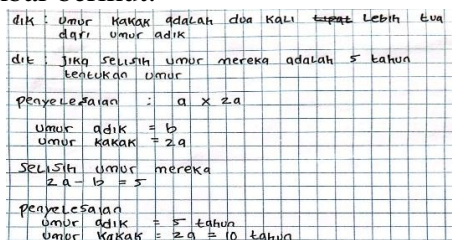 dik : umur kakak adalah dua kali lebih tua
dari umur adik
dit : jika selisih umur mereka adalah 5 tahun
tentukan umur
penyelesaian : a x 2a
umur adik = b
umur kakak = 2a
selisih umur mereka
2a - b = 5
penyelesaian
umur adik = 5 tahun
umur kakak = 2a = 10 tahun